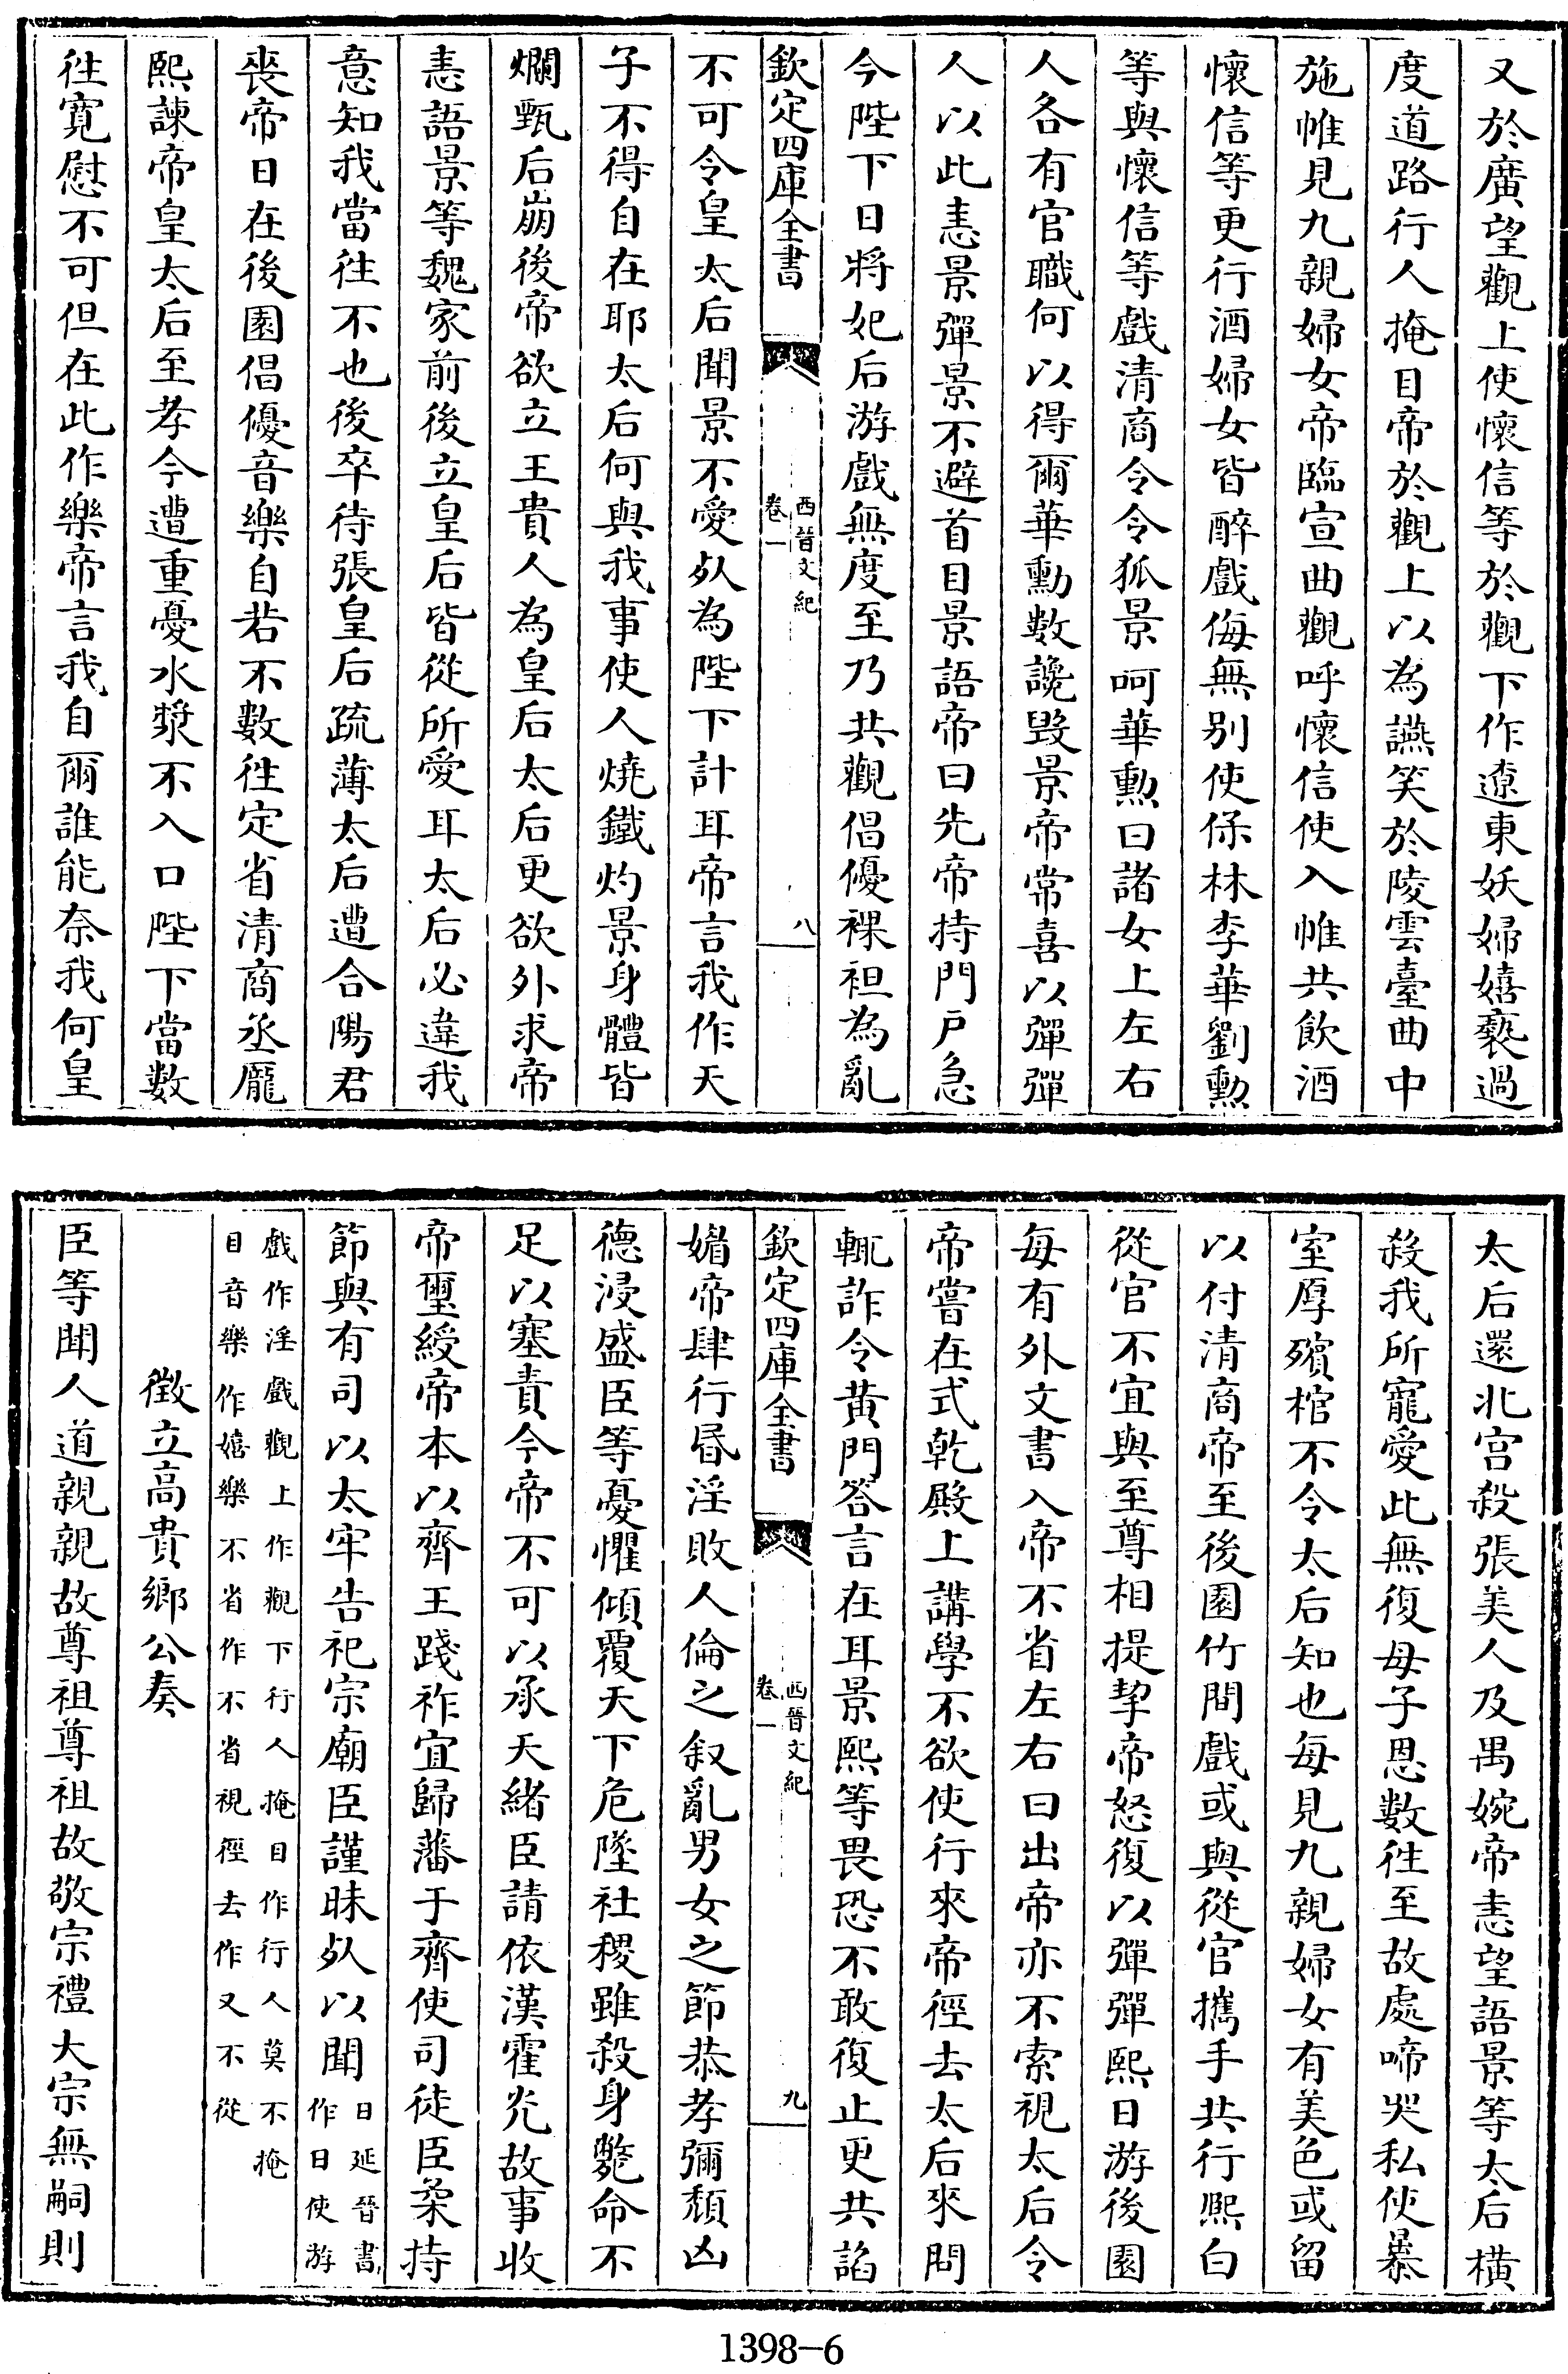 又於廣望觀上使懷信等於觀下作遼東妖婦嬉䙝過
度道路行人掩目帝於觀上以為讌笑於陵雲臺曲中
施帷見九親婦女帝臨宣曲觀呼懷信使入帷共飲酒
懷信等更行酒婦女皆醉戲侮無别使保林李華劉勲
等與懷信等戲清商令令狐景呵華勲曰諸女上左右
人各有官職何以得爾華勲數讒毀景帝常喜以彈彈
人以此恚景彈景不避首目景語帝曰先帝持門戸急
今陛下日將妃后游戲無度至乃共觀倡優裸袒為亂
欽定四庫全書
西晉文紀
卷一
八
不可令皇太后聞景不愛死為陛下計耳帝言我作天
子不得自在耶太后何與我事使人燒鐵灼景身體皆
爛甄后崩後帝欲立王貴人為皇后太后更欲外求帝
恚語景等魏家前後立皇后皆從所愛耳太后必違我
意知我當徃不也後卒待張皇后疏薄太后遭合陽君
喪帝日在後園倡優音樂自若不數徃定省清商丞龐
熙諫帝皇太后至孝今遭重憂水漿不入口陛下當數
徃寛慰不可但在此作樂帝言我自爾誰能奈我何皇
太后還北宫殺張美人及禺婉帝恚望語景等太后橫
殺我所寵愛此無復母子恩數徃至故處啼哭私使暴
室厚殯棺不令太后知也每見九親婦女有美色或留
以付清商帝至後園竹間戲或與從官攜手共行熙白
從官不宜與至尊相提挈帝怒復以彈彈熙日游後園
每有外文書入帝不省左右曰出帝亦不索視太后令
帝嘗在式乾殿上講學不欲使行來帝徑去太后來問
輒詐令黄門答言在耳景熙等畏恐不敢復止更共諂
欽定四庫全書
西晉文紀
卷一
九
媚帝肆行昏淫敗人倫之叙亂男女之節恭孝彌頽凶
德浸盛臣等憂懼傾覆天下危墜社稷雖殺身斃命不
足以塞責今帝不可以承天緒臣請依漢霍光故事收
帝璽綬帝本以齊王踐祚宜歸藩于齊使司徒臣柔持
節與有司以太牢告祀宗廟臣謹昧死以聞日延晉書作日使游
戲作淫戲觀上作觀下行人掩目作行人莫不掩
目音樂作嬉樂不省作不省視徑去作又不從
徵立高貴鄉公奏
臣等聞人道親親故尊祖尊祖故敬宗禮大宗無嗣則
1398-6